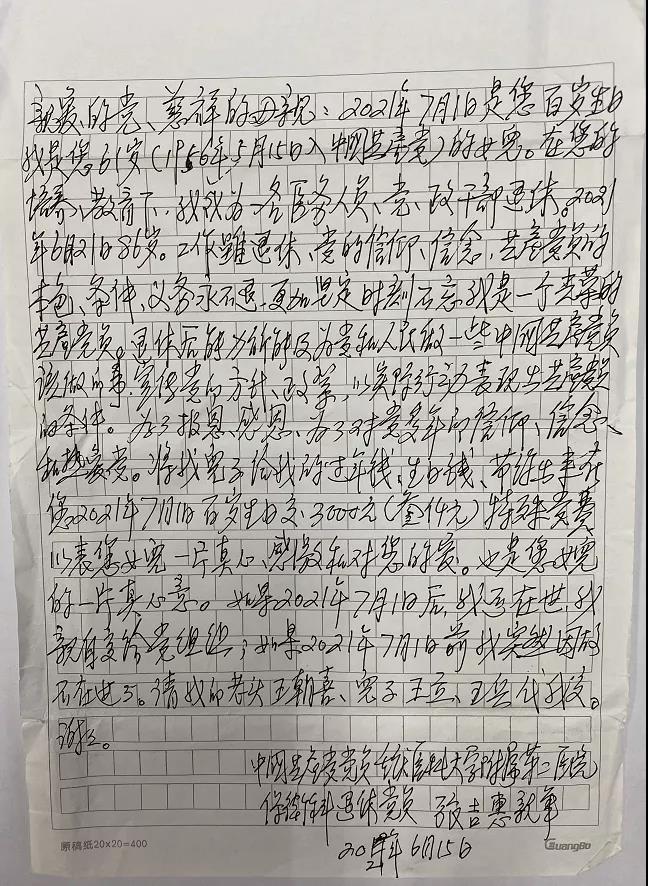 亲爱的党、慈祥的母亲：2021年7月1日是您百岁生日
我是您61岁(1956年5月15日入中国共产党)的女儿。在您的
培养、教育下，我成为一名医务人员、党、政干部退休。2021
年6月21日86岁。工作虽退休、党的信仰、信念、共产党员的
本色、条件、义务永不退、更加坚定时刻不忘我是一个光荣的
共产党员。退休后能力所能及为党和人民做一些中国共产党员
该做的事，宣传党的方针、政策，以实际行动表现出共产党员
的条件。为了报恩、感恩、为了对党多年的信仰、信念、
和热爱党。将我儿子给我的过年钱、生日钱、节维出来在
您2021年7月1日百岁生日交3000元(叁仟元)特殊党费
以表您女儿一片真心、感激和对您的爱。也是您女儿
的一片真心意。如果2021年7月1日后，我还在世，我
亲自交给党组织；如果2021年7月1日前我突然因故
不在世了。请我的老头王朝喜、儿子王立、王兵代我交。
谢谢。
中国共产党党员 医科大学附属第二医院
退休党员 张吉惠亲笔
年6月15日
原稿纸20×20=400
GuangBo